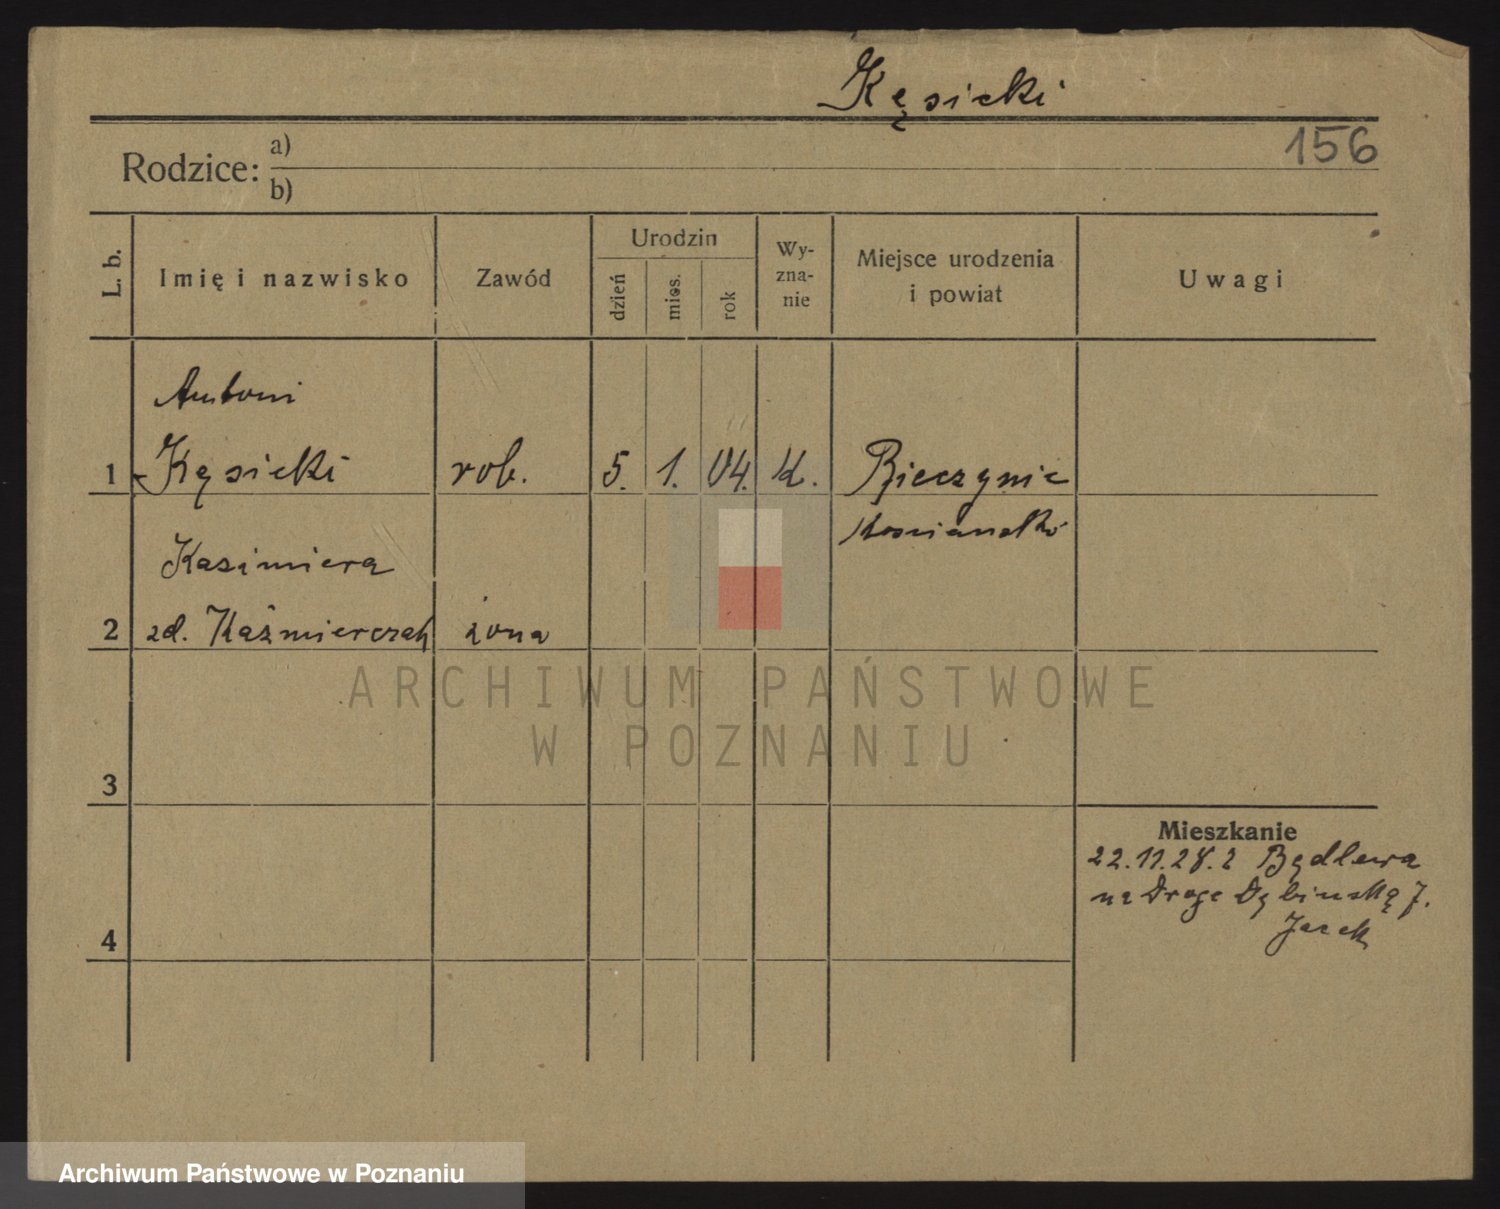 Kęsicki
156
Rodzice: a)
b)
L. b.
Imię i nazwisko
Zawód
Urodzin
dzień
mies.
rok
Wy-
zna-
nie
Miejsce urodzenia
i powiat
Uwagi
Antoni
1 Kęsicki rob. 5. 1. 04. k. Bieczynie
Kazimiera
2 zd. Kaźmierczak żona
ARCHIWUM PAŃSTWOWE
W POZNANIU
3
Mieszkanie
22.11.28. z Będlewa
na Drogę Dębińską 7.
4
Archiwum Państwowe w Poznaniu